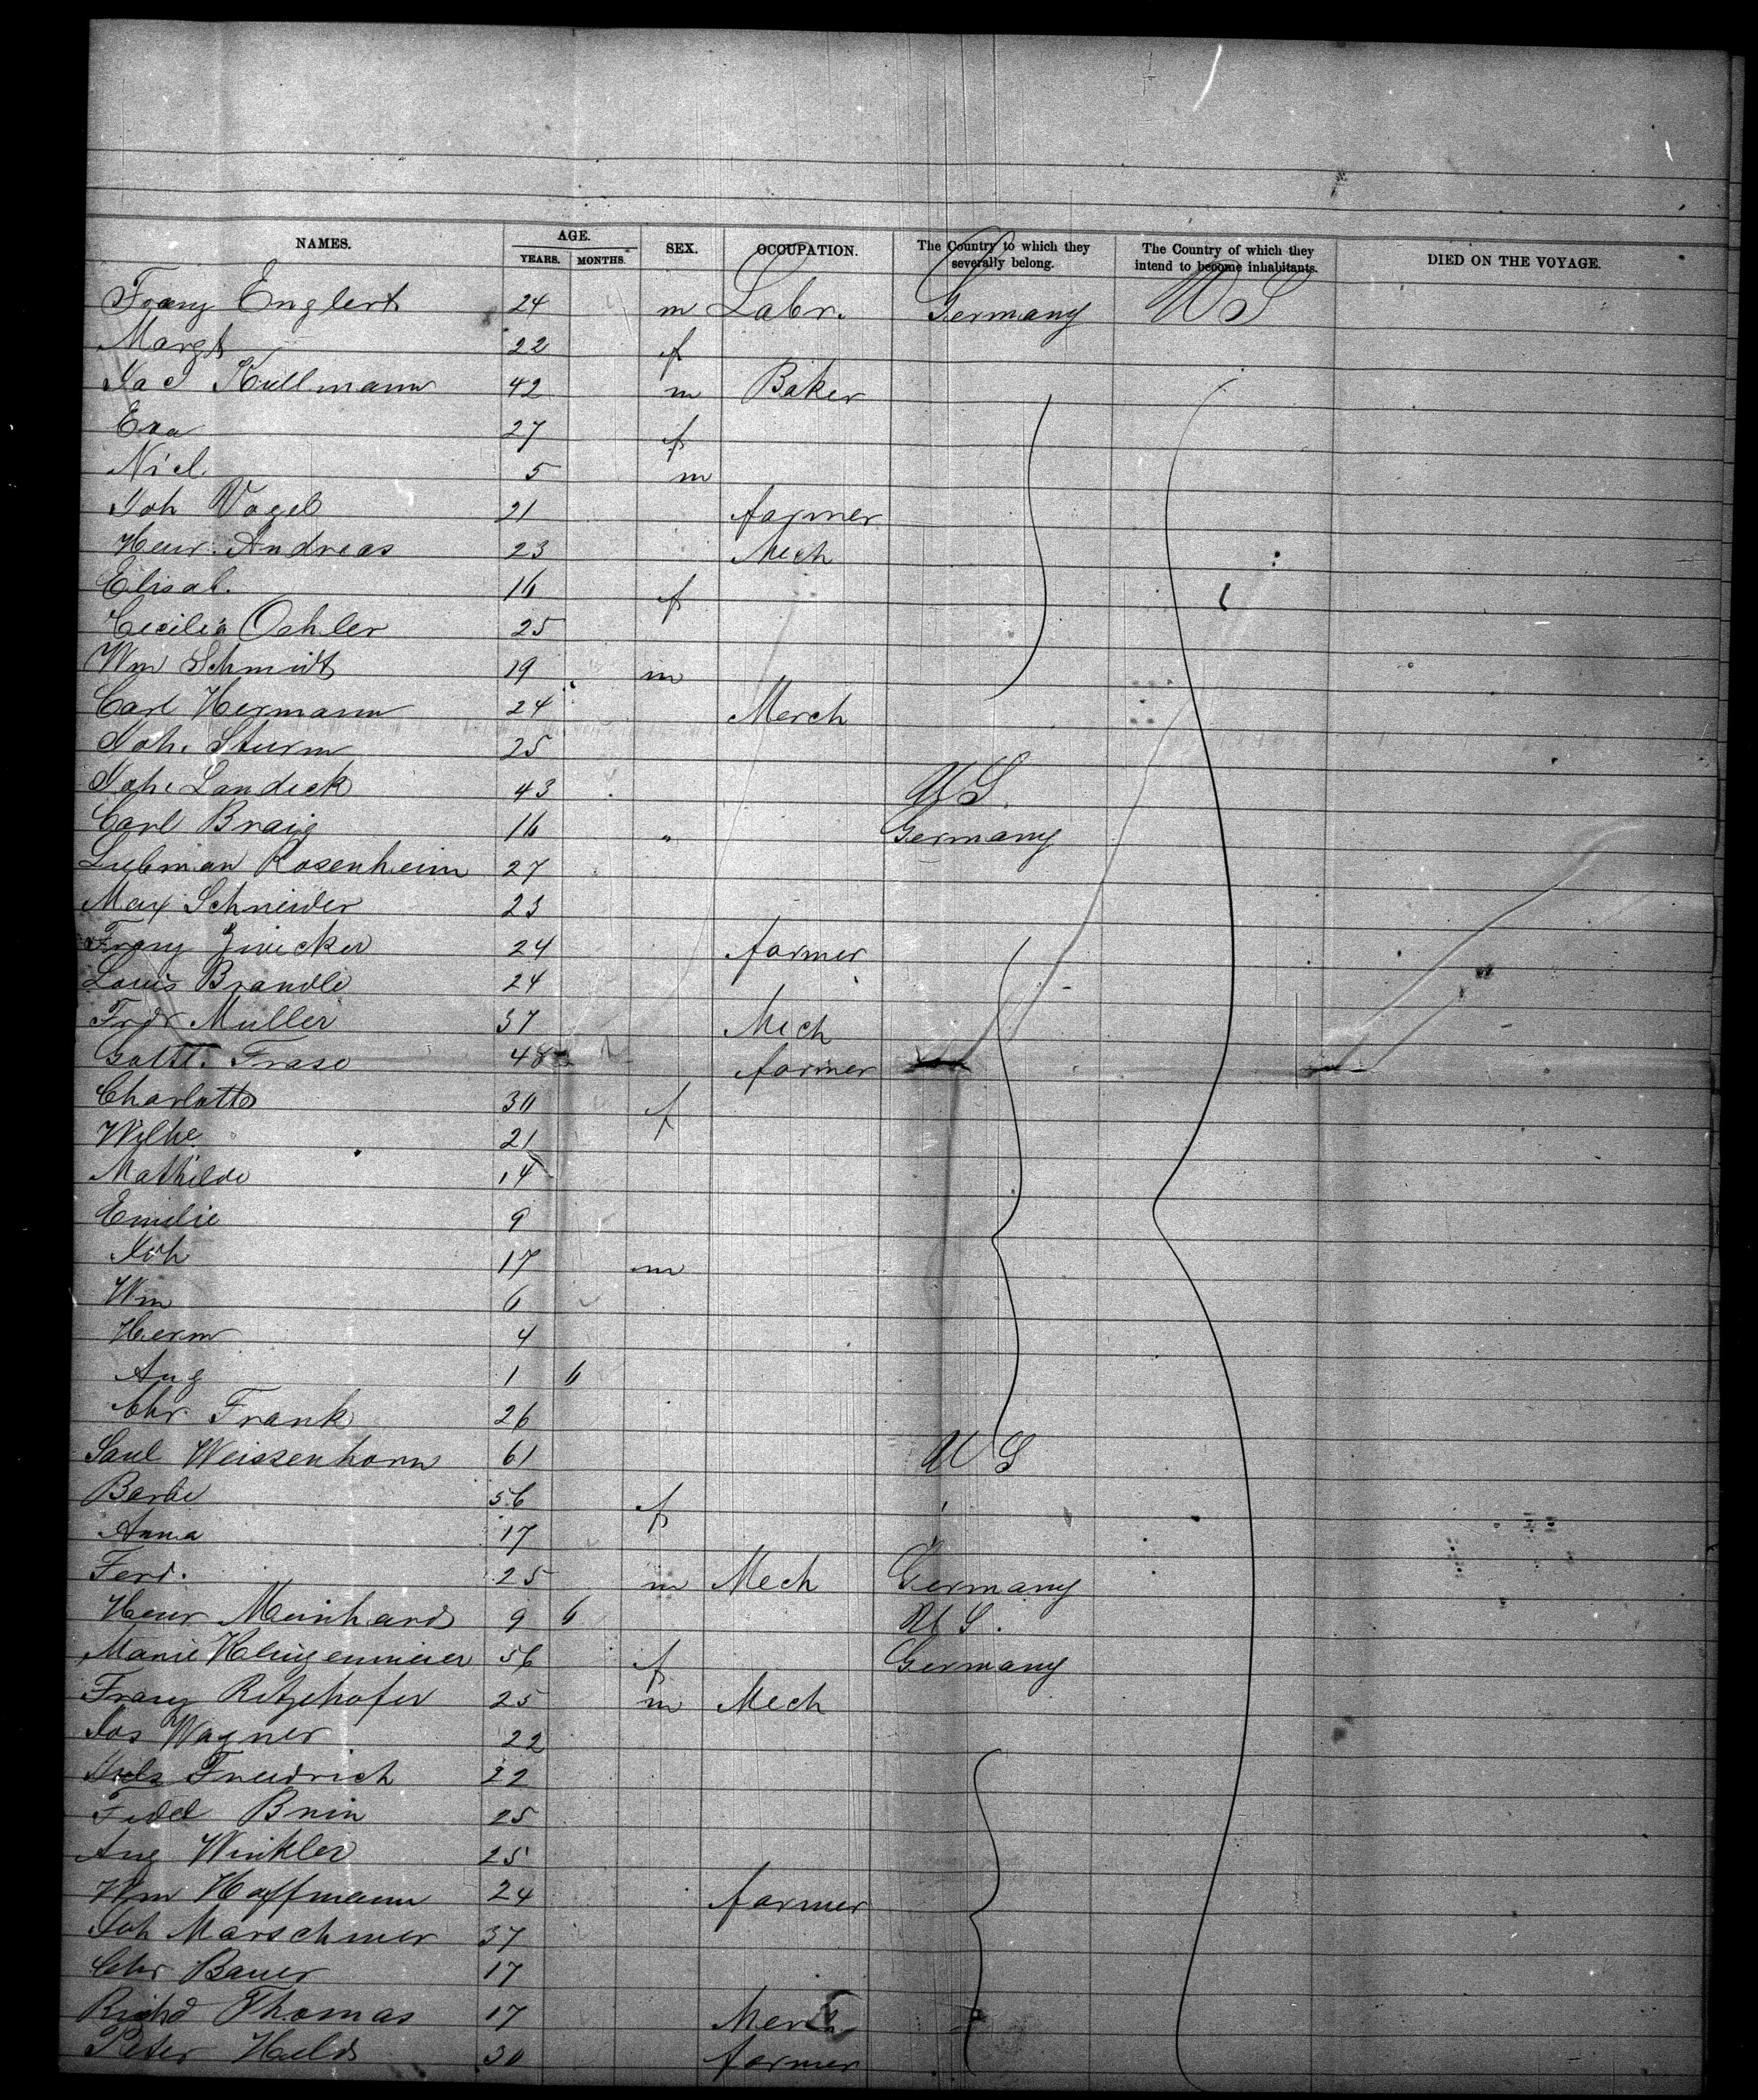 NAMES. AGE. SEX. OCCUPATION. The Country to which they severally belong. The Country of which they intend to become inhabitants. DIED ON THE VOYAGE.
YEARS. MONTHS.
Franz Englert 24 m Labr. Germany U S
Margt 22 f
Jac Kullmann 42 m Baker
Eva 27 f
Nicl. 5 m
Joh Vogel 21 farmer
Heinr. Andreas 23 Mech
Elisab. 16 f
Cecilia Oehler 25
Wm Schmidt 19 m
Carl Hermann 24 Merch
Joh. Sturm 25
Joh. Landeck 43 U S.
Carl Braig 16 " Germany
Liebman Rosenheim 27
Max Schneider 23
Franz Zwicker 24 farmer
Louis Brandle 24
Frdr Muller 37 Mech
Gottl. Frase 48 farmer
Charlotte 30 f
Wilhe 21
Mathilde 14
Emilie 9
Joh 17 m
Wm 6
Herm 4
Aug 1 6
Chr. Frank 26
Paul Weissenhorn 61 U S
Barbe 56 f
Anna 17
Ferd. 25 m Mech Germany
Heinr Meinhard 9 6 U S.
Marie Klingenmeier 56 f Germany
Franz Ritzehofer 25 m Mech
Jos Wagner 22
Friedrich 22
Fidel Brin 25
Aug Winkler 25
Wm Hoffmann 24 farmer
Joh Marschner 37
Chr Bauer 17
Richd Thomas 17 Merch
Peter Helds 30 farmer